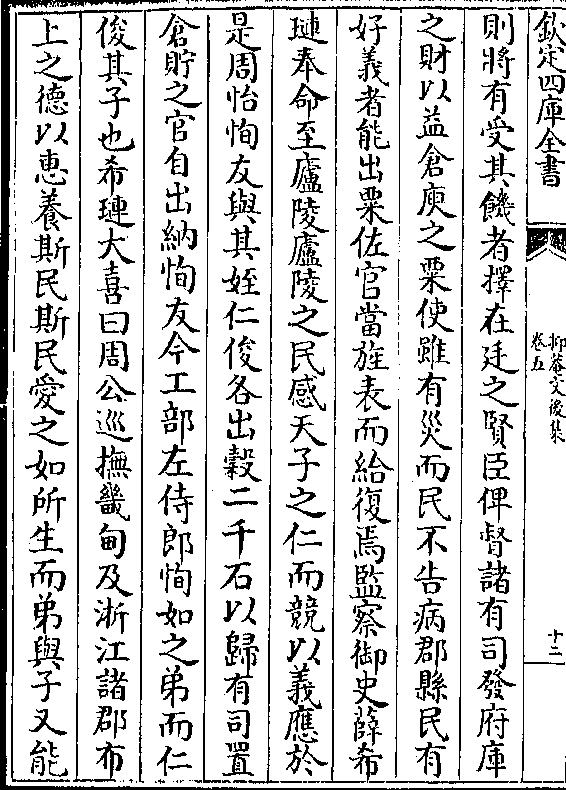 欽定四庫全書
抑菴文後集
卷五
十二
則將有受其饑者擇在廷之賢臣俾督諸有司發府庫
之財以益倉庾之粟使雖有災而民不告病郡縣民有
好義者能出粟佐官當旌表而給復焉監察御史薛希
璉奉命至廬陵廬陵之民感天子之仁而競以義應於
是周怡恂友與其姪仁俊各出榖二千石以歸有司置
倉貯之官自出納恂友今工部左侍郎恂如之弟而仁
俊其子也希璉大喜曰周公巡撫畿甸及浙江諸郡布
上之德以惠養斯民斯民愛之如所生而弟與子又能